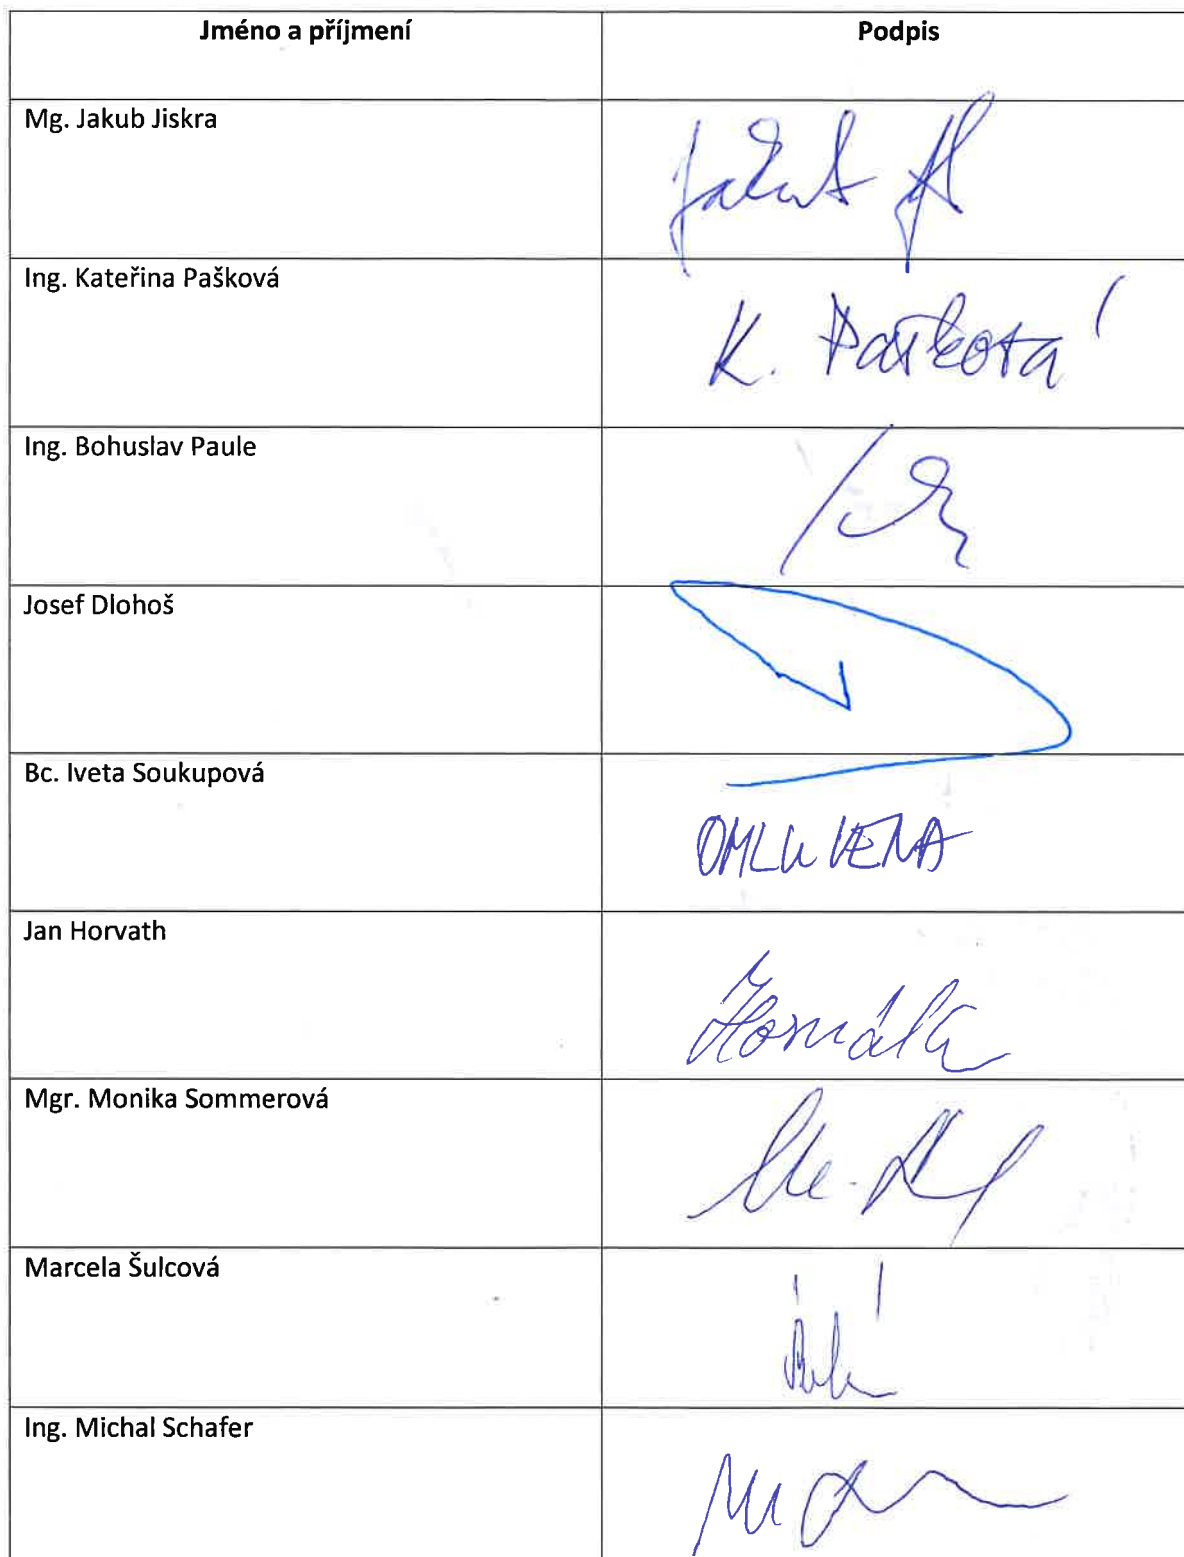 Jméno a příjmení Podpis
Mg. Jakub Jiskra
Ing. Kateřina Pašková K. Pašková
Ing. Bohuslav Paule
Josef Dlohoš
Bc. Iveta Soukupová OMLUVENA
Jan Horvath
Mgr. Monika Sommerová
Marcela Šulcová
Ing. Michal Schafer